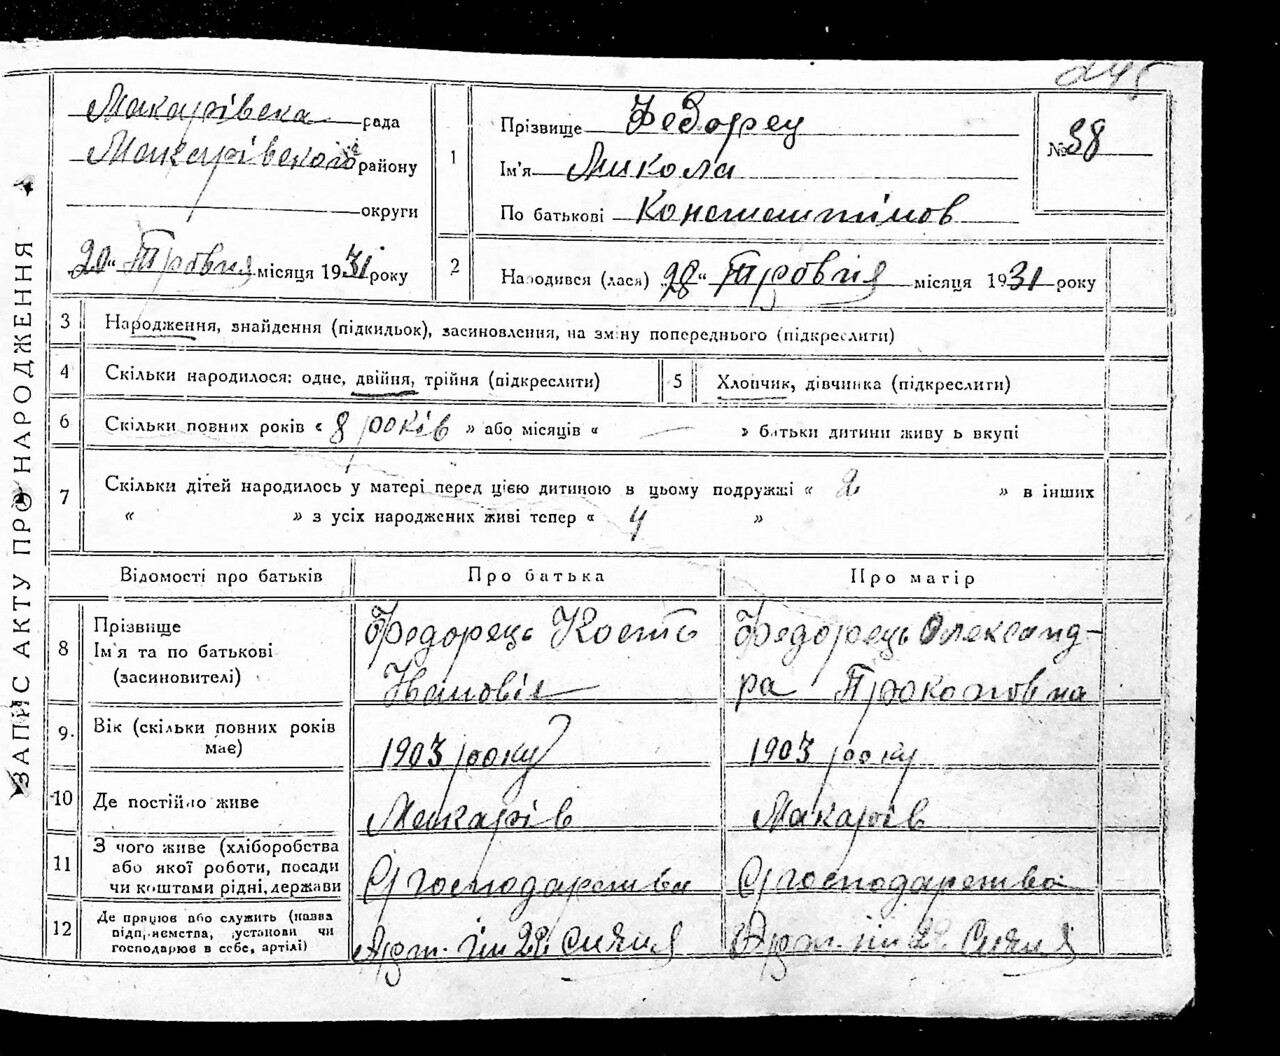 245
ЗАПИС АКТУ ПРО НАРОДЖЕННЯ
Макарівска рада
Макарівского району
округи
20 " Тровня місяця 1931 року
1
Прізвище Федорец
Ім'я Микола
По батькові Константінов
№ 38
2
Народився (лася) 28 " Тровня місяця 1931 року
3 Народження, знайдення (підкидьок), засиновлення, на зміну попереднього (підкреслити)
4 Скільки народилося: одне, двійня, трійня (підкреслити)
5 Хлопчик, дівчинка (підкреслити)
6 Скільки повних років « 8 років » або місяців « — » батьки дитини живуть вкупі
7 Скільки дітей народилось у матері перед цією дитиною в цьому подружжі « 2 » в інших
« » з усіх народжених живі тепер « 4 »
Відомості про батьків Про батька Про матір
8 Прізвище
Ім'я та по батькові
(засиновителі)
Федорець Кость
Іванович
Федорець Олександ-
ра Прокоповна
9. Вік (скільки повних років
має)
1903 року
1903 року
10 Де постійно живе Макарів Макарів
11 З чого живе (хліборобства
або якої роботи, посади
чи коштами рідні, держави
С/господарства
С/господарства
12 Де працюв або служить (назва
підприємства, установи чи
господарює в себе, артілі)
Арт. ім 22 Січня
Арт. ім 22 Січня